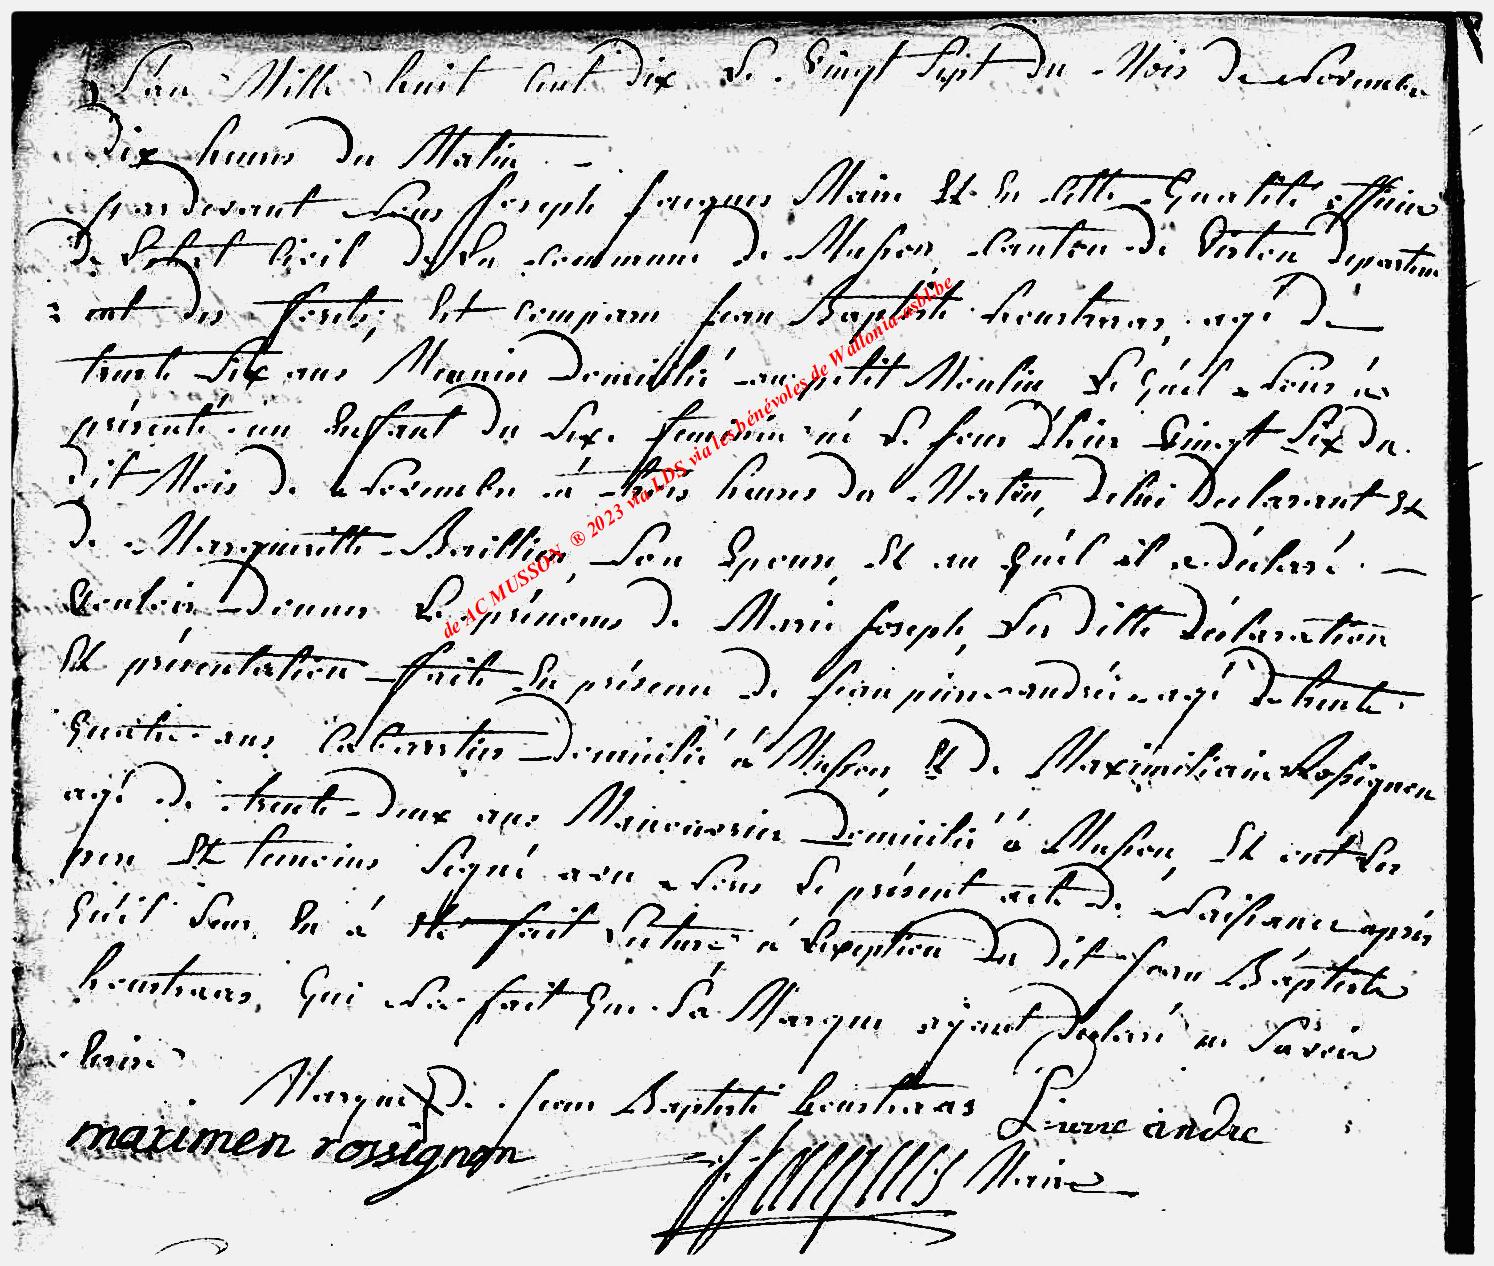 L'an Mille huit Cent dix Le Vingt Sept du Mois de Novembre
dix heures du Matin
pardevant Nous Joseph Jacques Maire Et En Cette Qualité officier
de L'etat Civil de La Commune de Musson, Canton de Virton departem
ent des forets, Est comparu Jean Baptiste houstraas, agé de
trente Six ans Meunier Domicilié au petit Moulin Le Quel Nous à
présenté un Enfant du Sexe feminin né Le Jour d'hier Vingt Six du
dit Mois de Novembre à trois heures du Matin, de lui Declarant Et
de Margueritte Baillieu, Son Epouse, Et au Quel il a déclaré
Vouloir donner Le prénoms de Marie Joseph, Les ditte Déclaration
Et présentation faite En présence de Jean pierre andré agé de trente
Quatre ans Cabartier Domicilié à Musson, Et de Maximiliain Rossignon
agé de trente deux ans Manouvrier Domicilié à Musson, Et ont Les
pere Et temoins Signé avec Nous Le présent acte de Naissance après
Qu'il Leur En à été fait Lecture, à Lexception du dit Jean Baptiste
houstraas, Qui N'a fait Que Sa Marque ayant Declaré ne Savoir
Ecrire
Marque de Jean Baptiste houstraas Pierre andre
maximen rossignon
J Jacques Maire
de AC MUSSON ® 2023 via LDS via les bénévoles de Wallonia-asbl.be